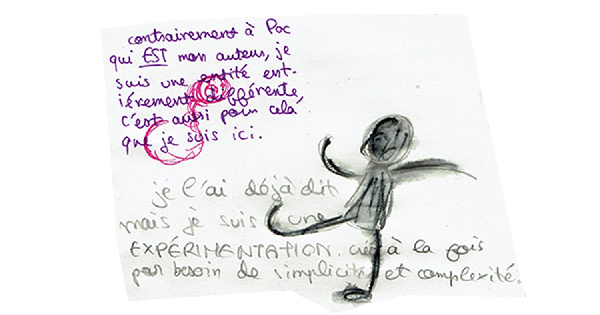 contrairement à Poc
qui EST mon auteur, je
suis une entité ent-
ièrement différente,
c'est aussi pour cela
que je suis ici.
je l'ai déjà dit
mais je suis une
EXPÉRIMENTATION. créé à la fois
par besoin de simplicité et complexité.